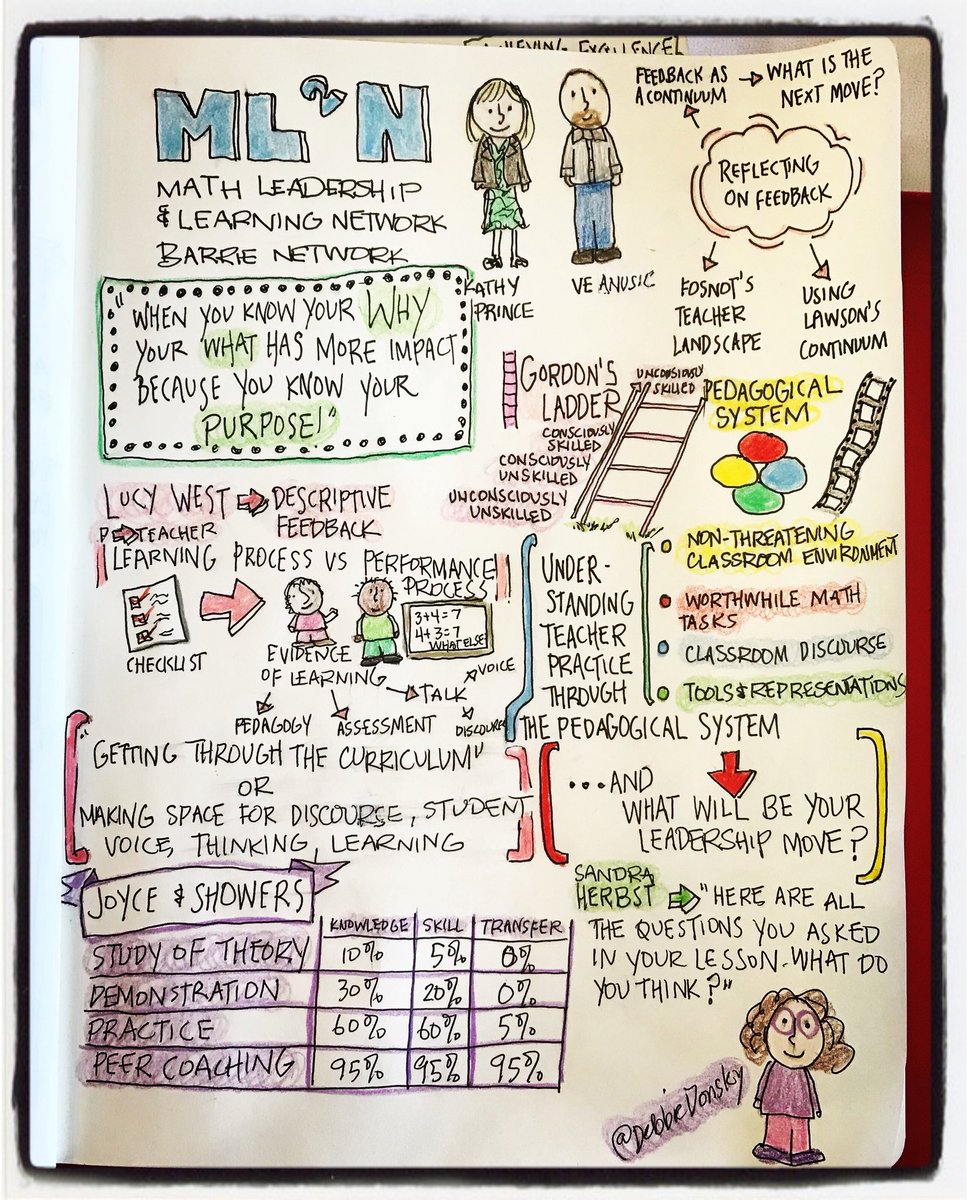 ACHIEVING EXCELLENCE!
ML²N
MATH LEADERSHIP
& LEARNING NETWORK
BARRIE NETWORK
KATHY
PRINCE
VE ANUSIC
FEEDBACK AS
A CONTINUUM
WHAT IS THE
NEXT MOVE?
REFLECTING
ON FEEDBACK
FOSNOT'S
TEACHER
LANDSCAPE
USING
LAWSON'S
CONTINUUM
"WHEN YOU KNOW YOUR WHY
YOUR WHAT HAS MORE IMPACT
BECAUSE YOU KNOW YOUR
PURPOSE!"
GORDON'S
LADDER
UNCONSIOUSLY
SKILLED
CONSCIOUSLY
SKILLED
CONSCIOUSLY
UNSKILLED
UNCONSCIOUSLY
UNSKILLED
PEDAGOGICAL
SYSTEM
LUCY WEST
DESCRIPTIVE
FEEDBACK
TEACHER
LEARNING PROCESS VS PERFORMANCE
PROCESS
CHECKLIST
3+4=7
4+3=7
WHAT ELSE?
EVIDENCE
OF LEARNING
TALK
VOICE
DISCOURSE
PEDAGOGY
ASSESSMENT
UNDER-
STANDING
TEACHER
PRACTICE
THROUGH
THE PEDAGOGICAL SYSTEM
NON-THREATENING
CLASSROOM ENVIRONMENT
WORTHWHILE MATH
TASKS
CLASSROOM DISCOURSE
TOOLS & REPRESENTATIONS
"GETTING THROUGH THE CURRICULUM"
OR
MAKING SPACE FOR DISCOURSE, STUDENT
VOICE, THINKING, LEARNING
...AND
WHAT WILL BE YOUR
LEADERSHIP MOVE?
JOYCE & SHOWERS
KNOWLEDGE SKILL TRANSFER
STUDY OF THEORY 10% 5% 0%
DEMONSTRATION 30% 20% 0%
PRACTICE 60% 60% 5%
PEER COACHING 95% 95% 95%
SANDRA
HERBST
"HERE ARE ALL
THE QUESTIONS YOU ASKED
IN YOUR LESSON. WHAT DO
YOU THINK?"
@DebbieDonsky